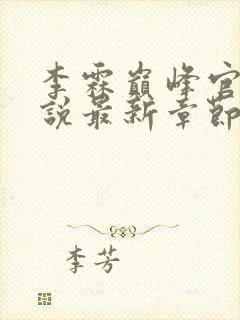 李霖巅峰官
说最新章節
李芳